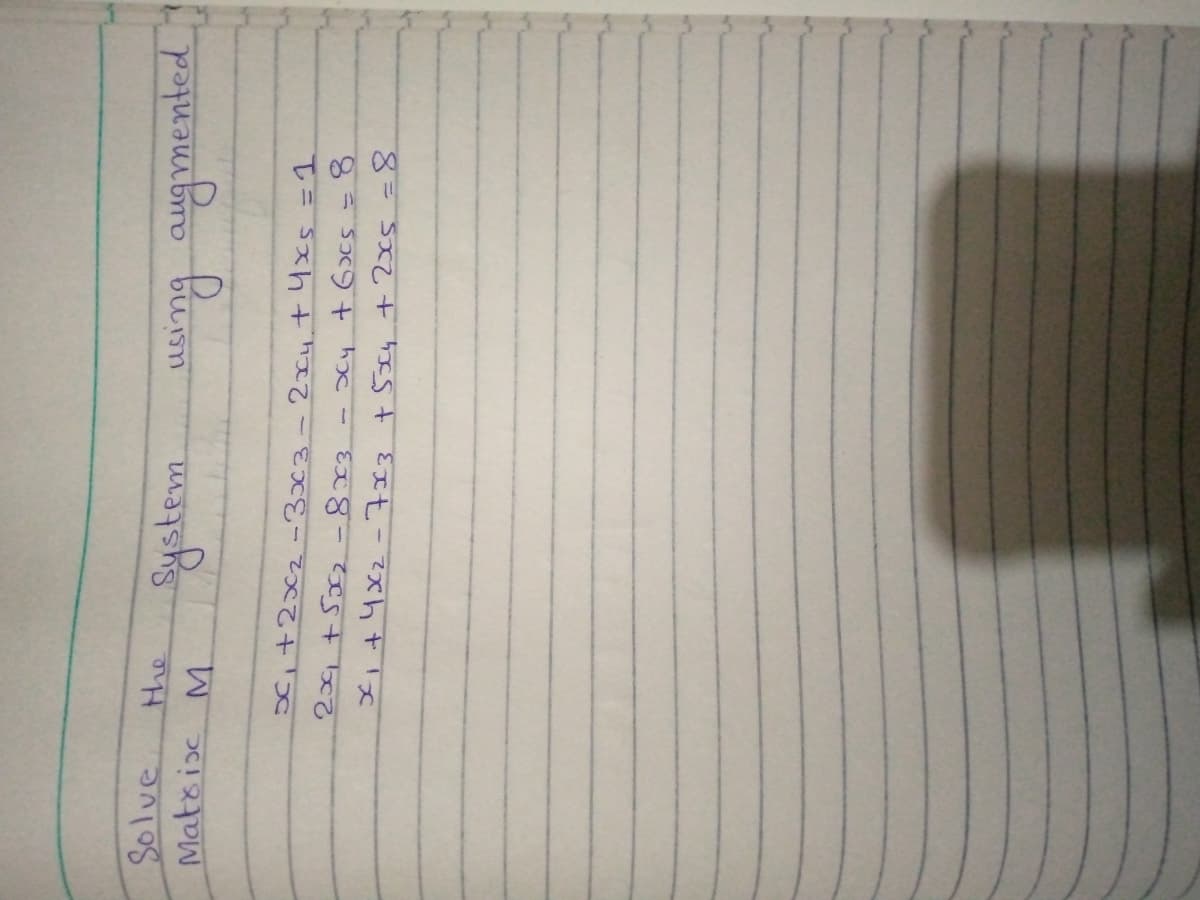 Solve the System using augmented
Matrix M
x₁ + 2x₂ - 3x₃ - 2x₄ + 4x₅ = 1
2x₁ + 5x₂ - 8x₃ - x₄ + 6x₅ = 8
x₁ + 4x₂ - 7x₃ + 5x₄ + 2x₅ = 8